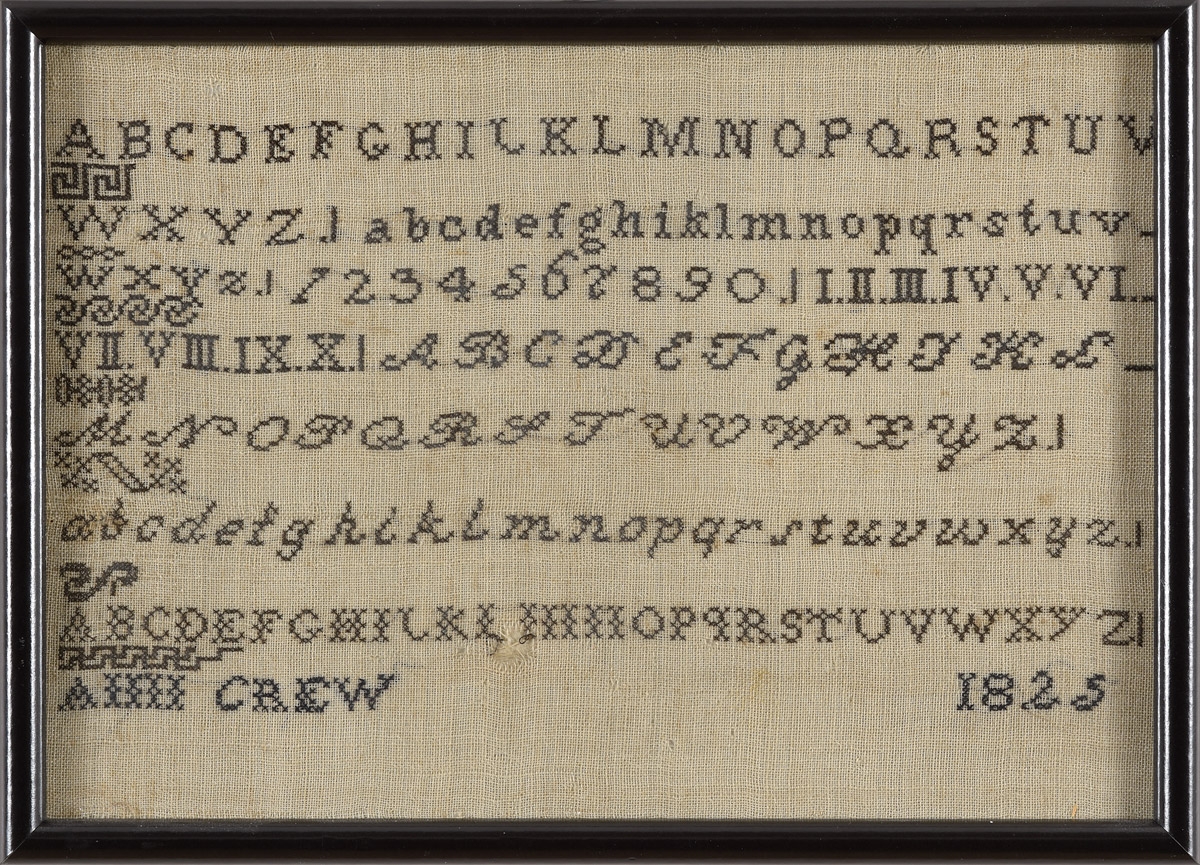 ABCDEFGHIJKLMNOPQRSTUV
WXYZ abcdefghiklmnopqrstuv
wxyz 1234567890 I.II.III.IV.V.VI.
VII.VIII.IX.X. ABCDEFGHIKL
MNOPQRSTUVWXYZ
abcdefghiklmnopqrstuvwxyz
ABCDEFGHIJKLMNOPQRSTUVWXYZ
ANN CREW 1825